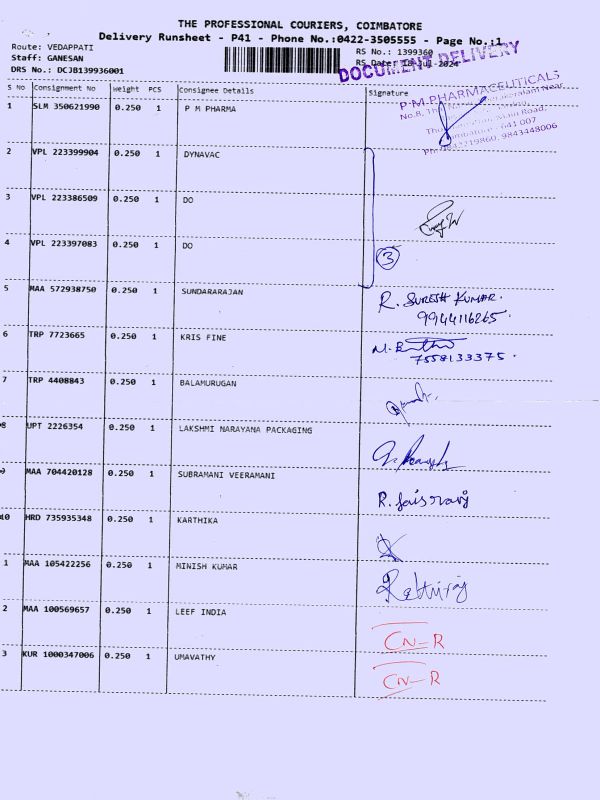 THE PROFESSIONAL COURIERS, COIMBATORE
Delivery Runsheet - P41 - Phone No.:0422-3505555 - Page No.:1
Route: VEDAPPATI
Staff: GANESAN
DRS No.: DCJB139936001
RS No.: 1399360
RS Date: 18-Jul-2024
DOCUMENT DELIVERY
S No Consignment No Weight PCS Consignee Details Signature
1 SLM 350621990 0.250 1 P M PHARMA
P M PHARMACEUTICALS
641 007
9843448006
2 VPL 223399904 0.250 1 DYNAVAC
3 VPL 223386509 0.250 1 DO
4 VPL 223397083 0.250 1 DO
3
5 MAA 572938750 0.250 1 SUNDARARAJAN
R. SURESH KUMAR.
9944116265
6 TRP 7723665 0.250 1 KRIS FINE
7558133375
7 TRP 4408843 0.250 1 BALAMURUGAN
8 UPT 2226354 0.250 1 LAKSHMI NARAYANA PACKAGING
9 MAA 704420128 0.250 1 SUBRAMANI VEERAMANI
10 HRD 735935348 0.250 1 KARTHIKA
1 MAA 105422256 0.250 1 MINISH KUMAR
2 MAA 100569657 0.250 1 LEEF INDIA
CN-R
3 KUR 1000347006 0.250 1 UMAVATHY
CN-R